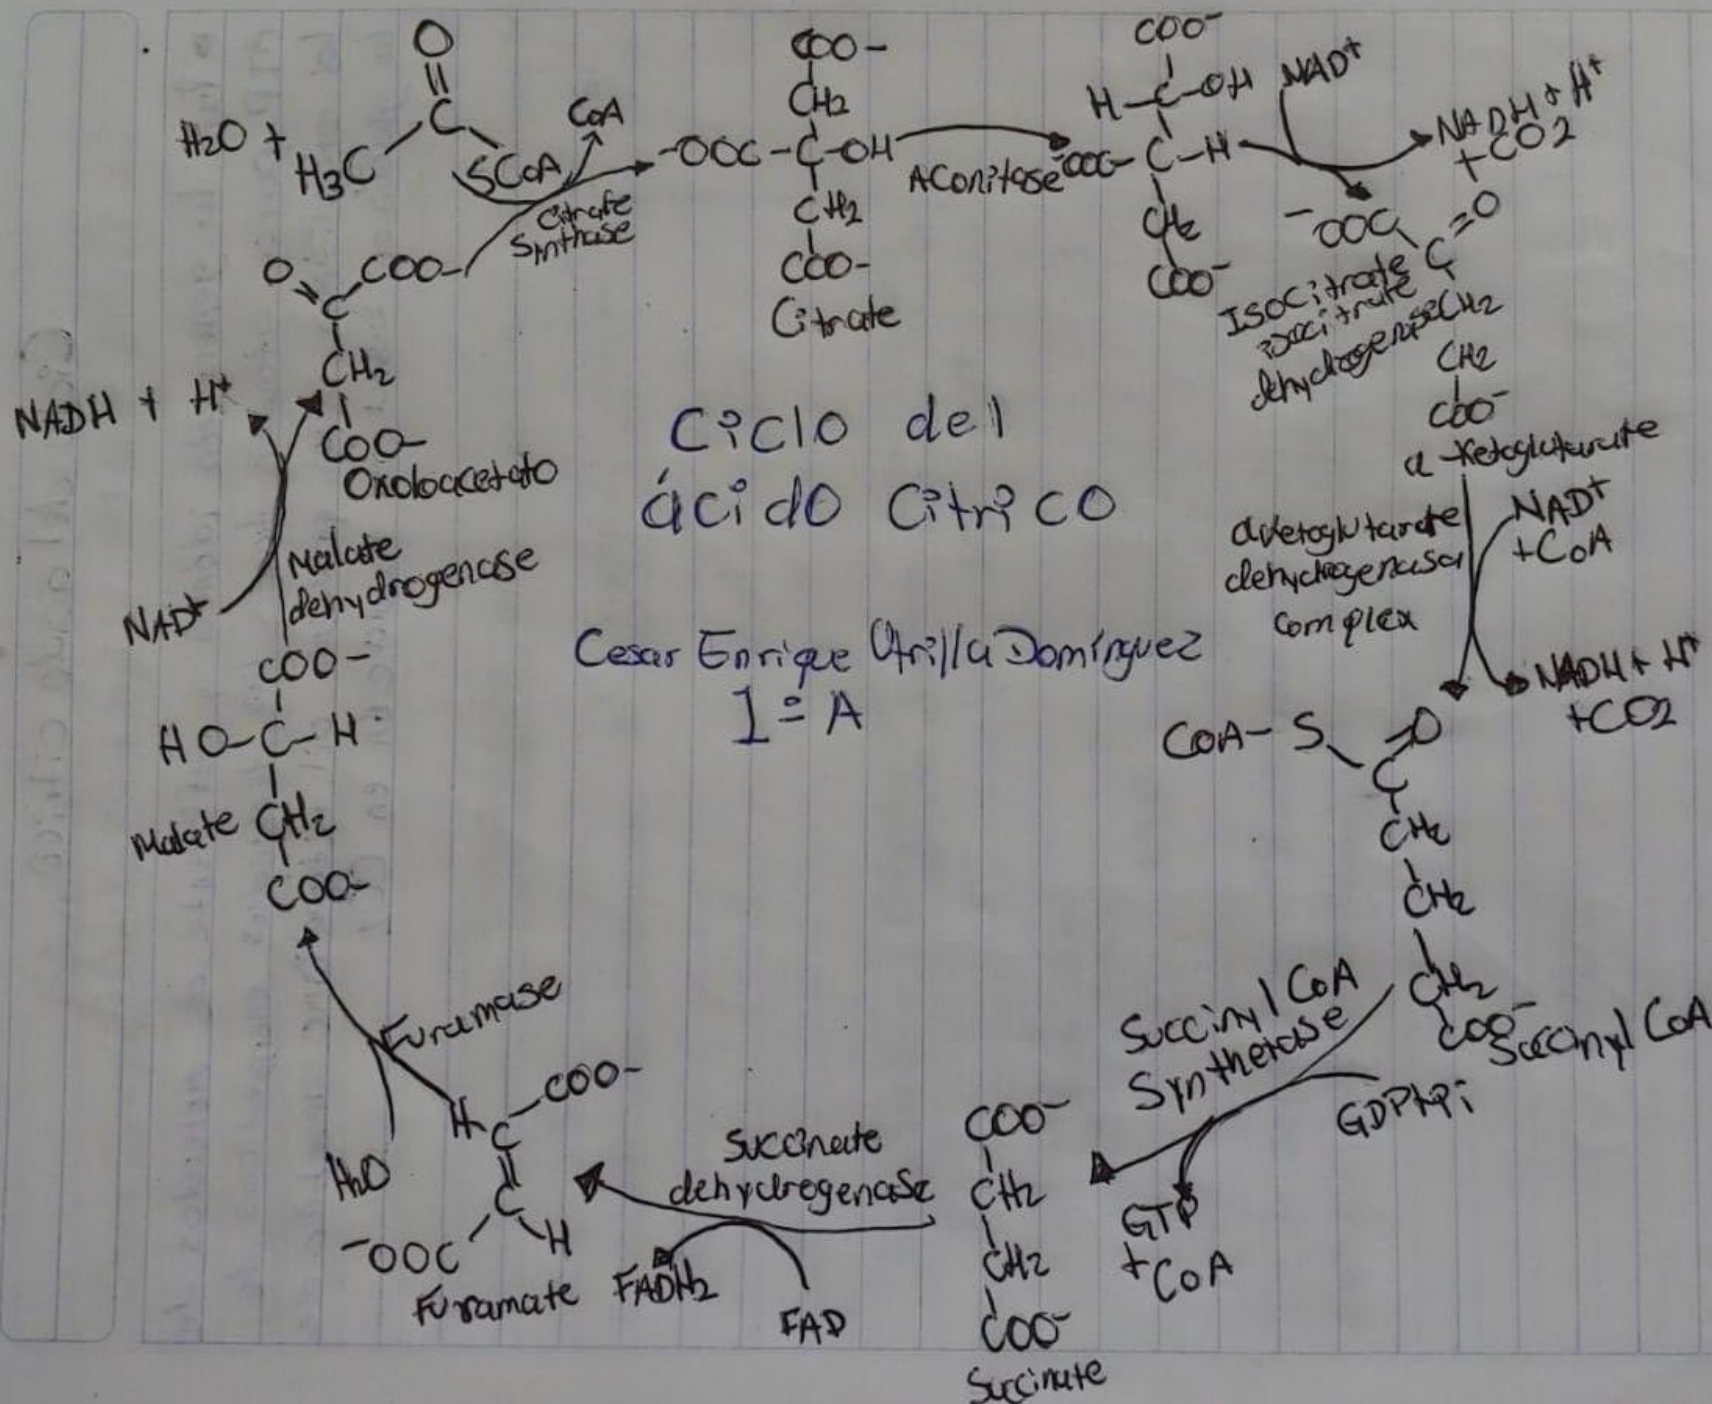 O
H2O +
C
H3C
SCoA
CoA
Citrate
Synthase
COO-
CH2
-OOC-C-OH
CH2
COO-
Citrate
Aconitase
COO-
H-C-OH
-OOC-C-H
CH2
COO-
Isocitrate
isocitrate
dehydrogenase
NAD+
NADH + H+
+ CO2
-OOC
C=O
CH2
CH2
COO-
α-Ketoglutarate
NAD+
+CoA
αketoglutarate
dehydrogenasa
complex
NADH + H+
+CO2
CoA-S
C=O
CH2
CH2
CH2
COO-
Succinyl CoA
Succinyl CoA
Synthetase
GDP+Pi
GTP
+ CoA
COO-
CH2
CH2
COO-
Succinate
Succinate
dehydrogenase
FAD
FADH2
H
C
COO-
C
-OOC
H
Furamate
Furamase
H2O
COO-
HO-C-H
CH2
COO-
Malate
Malate
dehydrogenase
NAD+
NADH + H+
O
C
COO-
CH2
COO-
Oxoloacetato
Ciclo del
ácido Citrico
Cesar Enrique Utrilla Domínguez
1º A